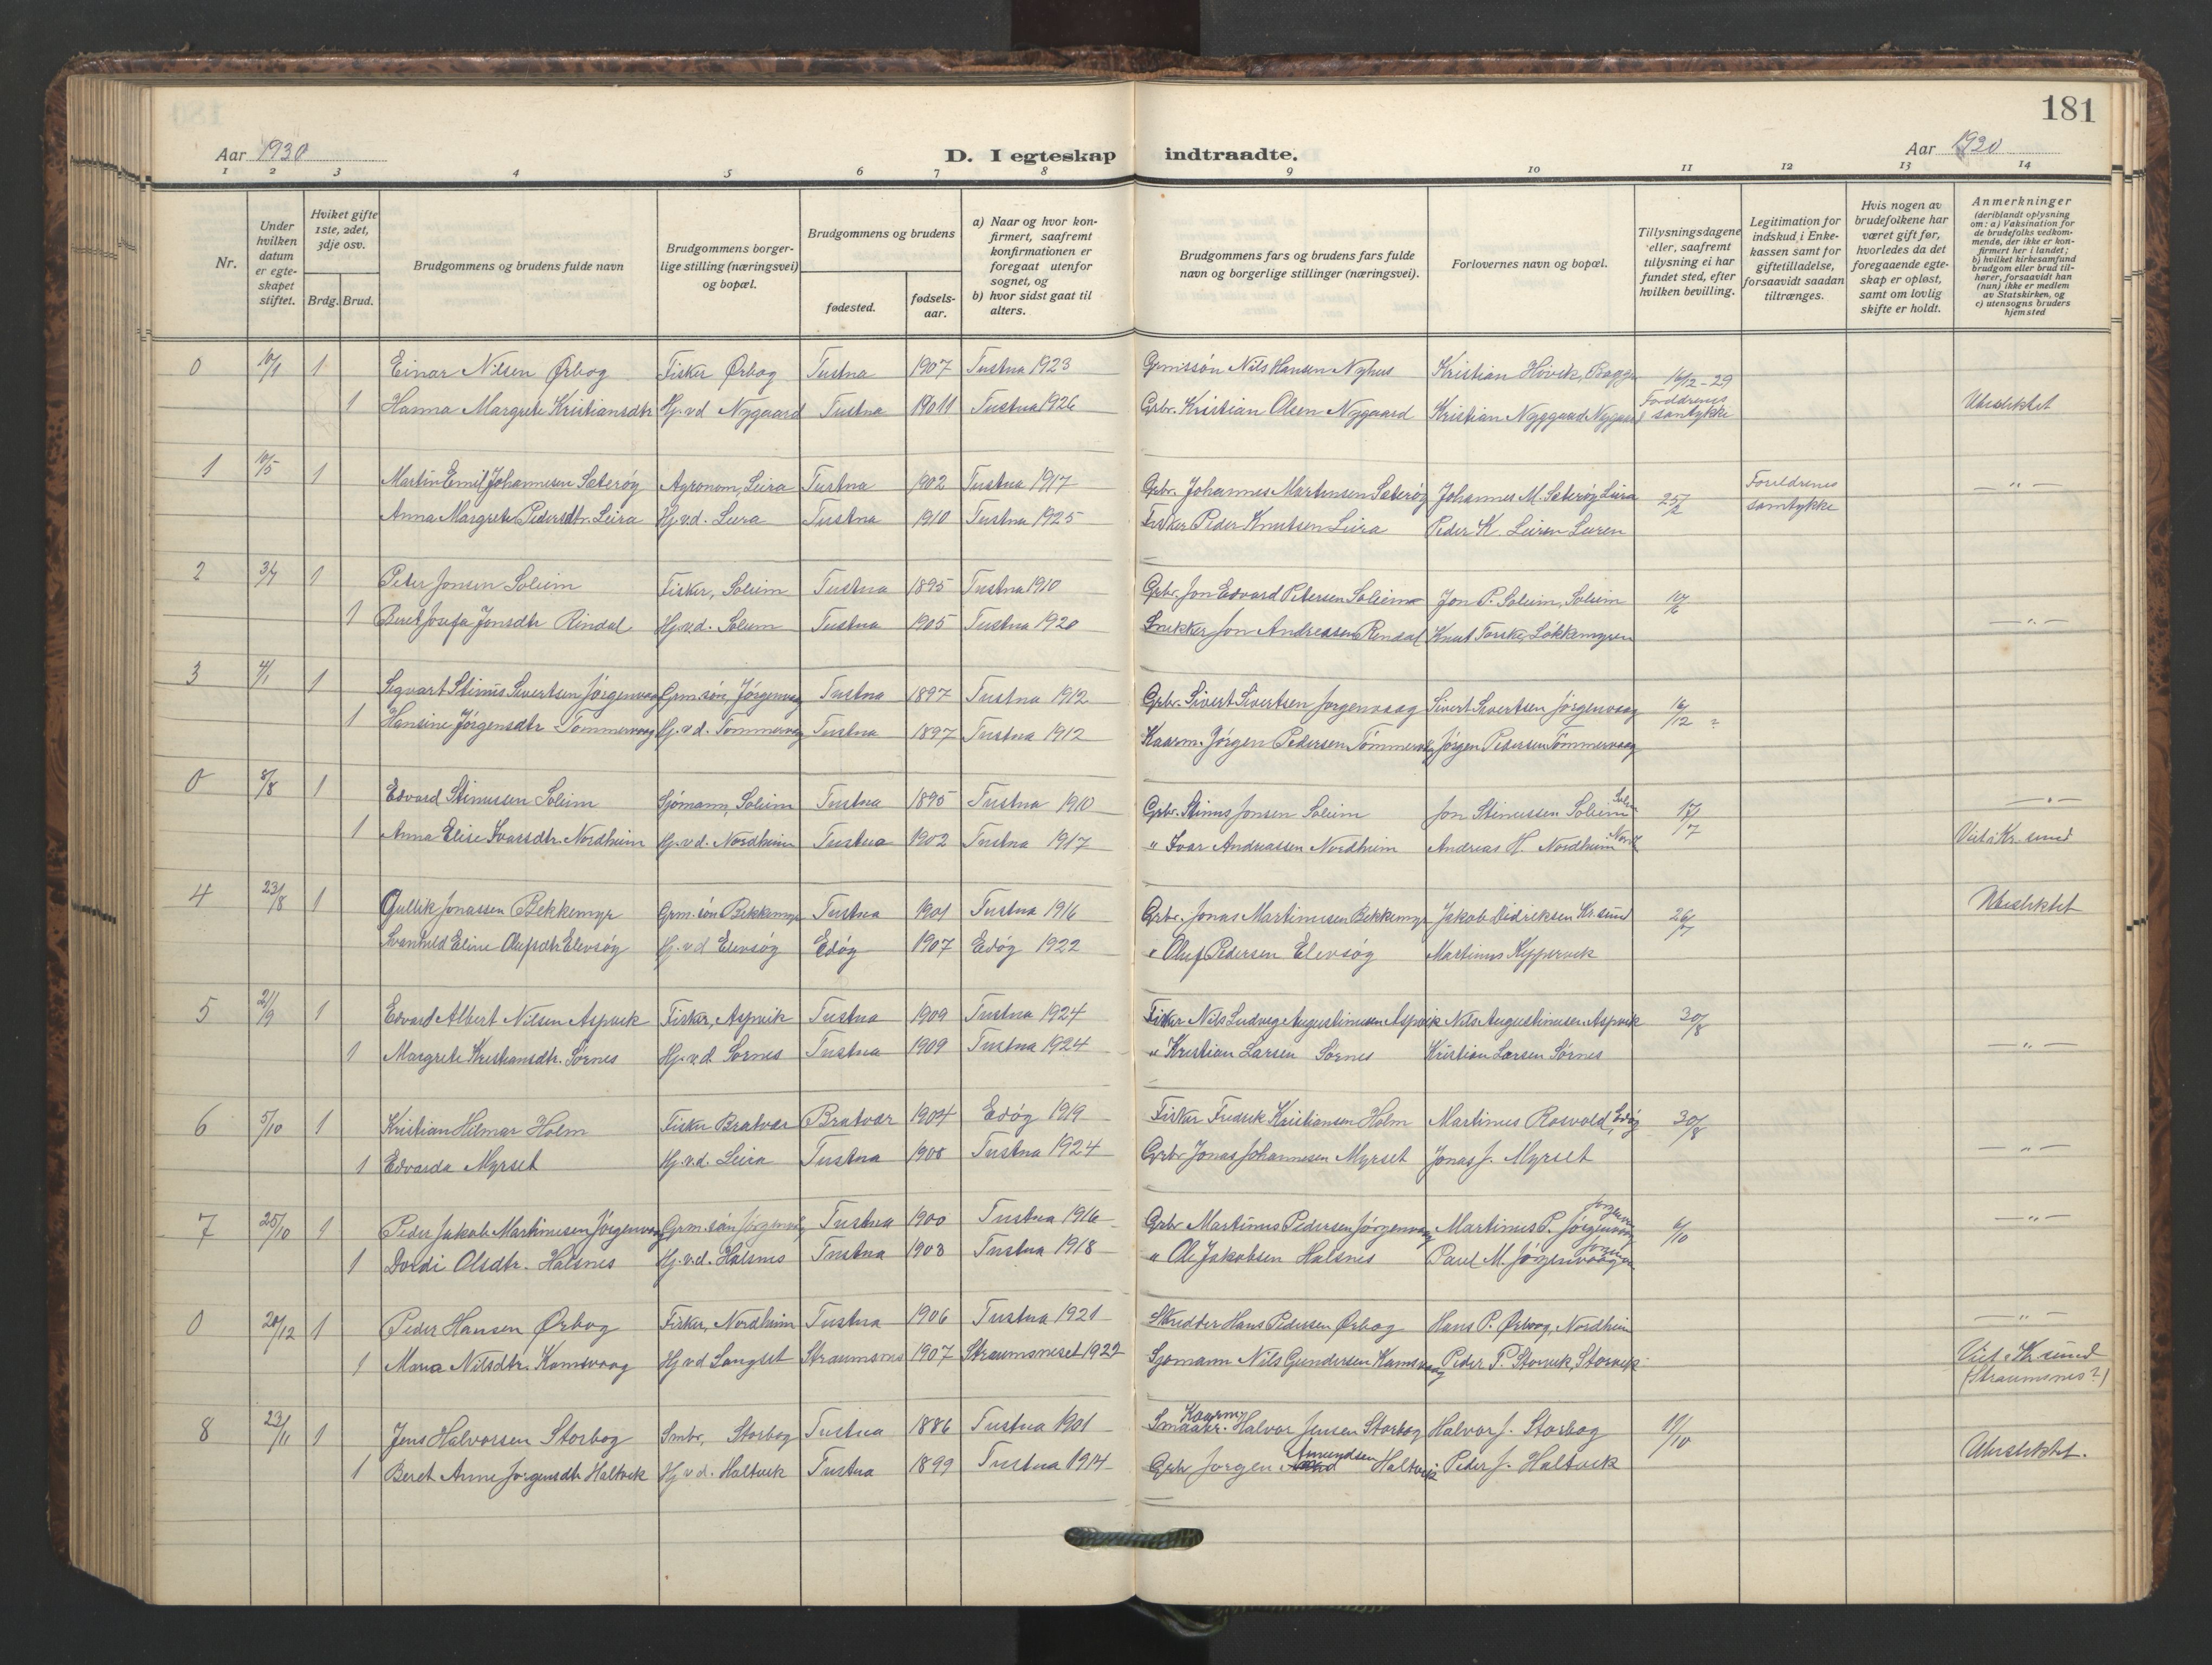 181
Aar 1930
D. I egteskap indtraadte.
Aar 1930
1 2 3 4 5 6 7 8 9 10 11 12 13 14
Nr.
Under hvilken datum er egteskapet stiftet.
Hviket gifte 1ste, 2det, 3dje osv.
Brdg. Brud.
Brudgommens og brudens fulde navn
Brudgommens borgerlige stilling (næringsvei) og bopæl.
Brudgommens og brudens
fødested.
fødselsaar.
a) Naar og hvor konfirmert, saafremt konfirmationen er foregaat utenfor sognet, og
b) hvor sidst gaat til alters.
Brudgommens fars og brudens fars fulde navn og borgerlige stillinger (næringsvei).
Forlovernes navn og bopæl.
Tillysningsdagene eller, saafremt tillysning ei har fundet sted, efter hvilken bevilling.
Legitimation for indskud i Enkekassen samt for giftetilladelse, forsaavidt saadan tiltrænges.
Hvis nogen av brudefolkene har været gift før, hvorledes da det foregaaende egteskap er opløst, samt om lovlig skifte er holdt.
Anmerkninger
(deriblandt oplysning om: a) Vaksination for de brudefolks vedkommende, der ikke er konfirmert her i landet; b) hvilket kirkesamfund brudgom eller brud tilhører, forsaavidt han (hun) ikke er medlem av Statskirken, og c) utensogns bruders hjemsted
0 10/1 1 Einar Nilsen Ørbog Fisker Ørbog Tustna 1907 Tustna 1923 Grmissøn Nils Hansen Nyhus Kristian Hövik, 16/12-29
1 Hanna Margrete Kristiansdtr Hj.v.d Nygaard Tustna 19011 Tustna 1926 Grbr. Kristian Olsen Nygaard Kristian Nyggaard Nygaard Forældrenes samtykke Uteslektet
1 10/5 1 Martin Emil Johannesen Sæterøy Agronom, Leira Tustna 1902 Tustna 1917 Grbr. Johannes Martinsen Sæterøy Johannes M. Sæterøy Leira 25/2 Foreldrenes samtykke — " —
Anna Margrete Pedersdtr. Leira Hj.v.d. Leira Tustna 1910 Tustna 1925 Fisker Peder Knutsen Leira Peder K. Leiren Leiren
2 3/7 1 Peter Jonsen Soleim Fisker, Soleim Tustna 1895 Tustna 1910 Grbr. Jon Edvard Petersen Soleim Jon P. Soleim, Soleim 10/6
1 Beret Josefa Jonsdtr Rindal Hj.v.d. Soleim Tustna 1905 Tustna 1920 Snekker Jon Andreassen Rendal Knut Torske, Løkkemyren — " —
3 4/1 1 Sigvart Stinus Sivertsen Jørgenvaag Grm.søn, Jørgenvaag Tustna 1897 Tustna 1912 Grbr. Sivert Sivertsen Jørgenvaag Sivert Sivertsen Jørgenvaag 16/12 ?
1 Hansine Jørgensdtr Tømmervaag Hj.v.d. Tømmervaag Tustna 1897 Tustna 1912 Kaarm. Jörgen Pedersen Tömmervaag Jörgen Pedersen Tömmervaag
0 8/8 1 Edvard Stinussen Soleim Sjömann, Soleim Tustna 1895 Tustna 1910 Grbr. Stinus Jonsen Soleim Jon Stinussen Soleim Soleim 17/7 — " —
1 Anna Elise Ivarsdtr. Nordheim Hj.v.d. Nordheim Tustna 1902 Tustna 1917 " Ivar Andreassen Nordheim Andreas H. Nordheim Viet i Kr.sund
4 23/8 1 Gullik Jonassen Bekkemyr Grm.søn Bekkemyr Tustna 1901 Tustna 1916 Grbr. Jonas Martinusen Bekkemyr Jakob Didriksen Kr.sund 26/7 Ubeslektet
Svanhild Eline Olufsdtr Elevsøy Hj.v.d Elevsøy Edøy 1907 Edøy 1922 " Oluf Pedersen Elevsøy Martinus Kyppervik
5 21/9 1 Edvard Albert Nilsen Aspvik Fisker, Aspvik Tustna 1909 Tustna 1924 Fisker Nils Ludvig Augustinusen Aspvik Nils Augustinusen Aspvik 30/8
1 Margrete Kristiansdtr. Sørnes Hj.v.d Sørnes Tustna 1909 Tustna 1924 " Kristian Larsen Sørnes Kristian Larsen Sørnes — " —
6 5/10 1 Kristian Hilmar Holm Fisker Bratvær Bratvær 1904 Edøy 1919 Fisker Fredrik Kristiansen Holm Martinus Rosvold, Edøy 30/8
1 Edvarda Myrset Hj.v.d. Leira Tustna 1908 Tustna 1924 Grbr Jonas Johannesen Myrset Jonas J. Myrset — " —
7 25/10 1 Peder Jakob Martinusen Jørgenvaag Grm.søn Jørgenvåg Tustna 1900 Tustna 1916 Grbr Martinus Pedersen Jørgenvaag Martinus P. Jørgenvaag 6/10 — " —
1 Dordi Olsdtr. Halsnes Hj.v.d. Halsnes Tustna 1903 Tustna 1918 " Ole Jakobsen Halsnes Paul M. Jørgenvaag
0 20/12 1 Peder Hansen Ørbog Fisker, Nordheim Tustna 1906 Tustna 1921 Skredder Hans Pedersen Ørbog Hans P. Ørbog, Nordheim — " —
1 Maria Nilsdtr. Kamsvaag Hj.v.d Langset Straumsnes 1907 Straumsneset 1922 Sjømann Nils Gundersen Kamsvaag Peder P. Storvik, Storvik Viet i Kr.sund (Straumsnes?)
8 23/11 1 Jens Halvorsen Storbog Smbr, Storbog Tustna 1886 Tustna 1901 Smaabr. Kaarm. Halvor Jensen Storbog Halvor J. Storbog 11/10
1 Beret Anne Jørgensdtr Haltvik Hj.v.d. Haltvik Tustna 1899 Tustna 1914 Grbr Jørgen Amundsen Haltvik Peder J. Haltvik Ubeslektet.